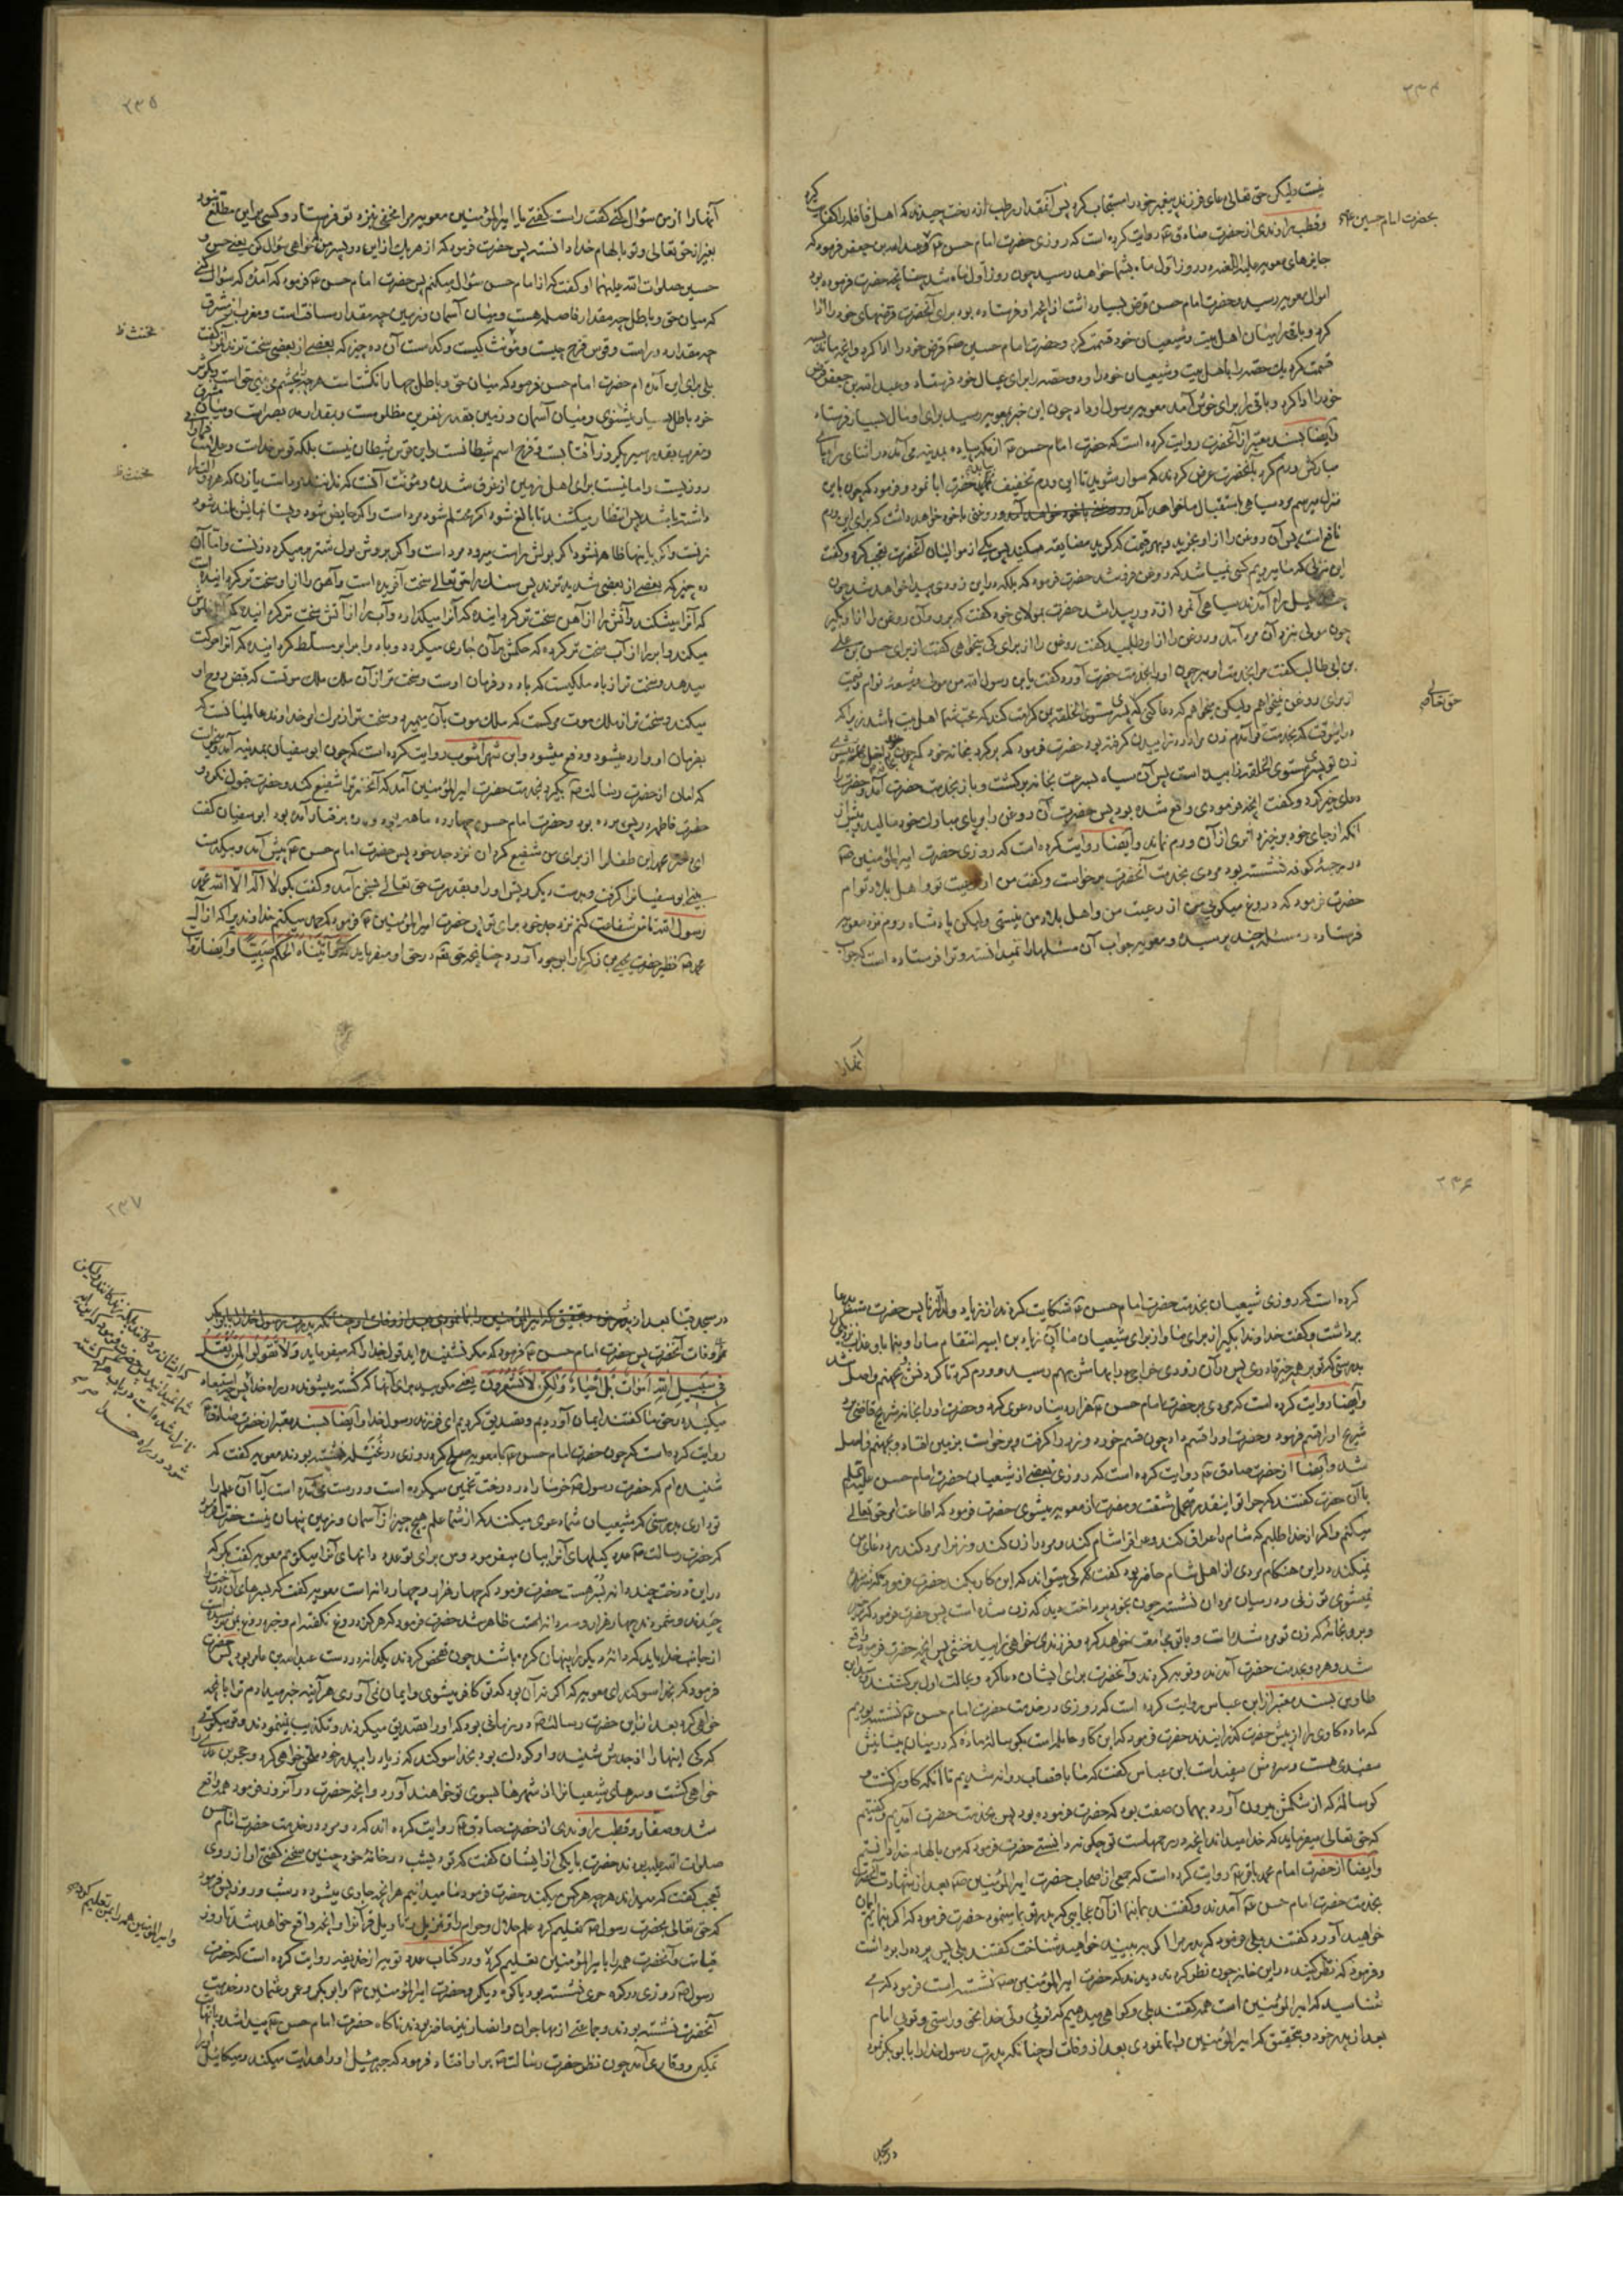 ۲۳۴
نیست ولیکن حق تعالی دعای فرزند پیغمبر خود را مستجاب کرد پس آنقدر از رطب از درخت چیدند که اهل قافله را کفایت کرد
بحضرت امام حسین
و قطب راوندی از حضرت صادق روایت کرده است که روزی حضرت امام حسن و عبدالله بن جعفر فرمود که
جایزهای معویه علیه اللعنه در روز اول ماه بشما خواهد رسید چون روز اول ماه شد چنانچه حضرت فرموده بود
اموال معویه رسید و حضرت امام حسن قرض بسیار داشت از آنچه او فرستاده بود برای آنحضرت قرضهای خود را ادا
کرد و باقی را میان اهل بیت و شیعیان خود قسمت کرد و حضرت امام حسین قرض خود را ادا کرد و آنچه ماند
قسمت کرد یک حصه را باهل بیت و شیعیان خود داد و دو حصه را برای عیال خود فرستاد و عبدالله بن جعفر قرض
خود را ادا کرد و باقی را برای خوش آمد معویه برسول او داد چون این خبر بمعویه رسید برای او مال بسیار فرستاد
وایضا بسند معتبر از آنحضرت روایت کرده است که حضرت امام حسن از مکه پیاده بمدینه می آمد در اثنای راه پای
مبارکش ورم کرد بآنحضرت عرض کردند که سوار شوید تا این ورم تخفیف یابد حضرت ابا نمود و فرمود که چون باین
منزل میرسیم مرد سیاهی باستقبال ما خواهد آمد و روغنی با خود خواهد داشت که برای این ورم
نافع است پس آن روغن را از او بخرید و بهر قیمت که گوید مضایقه مکنید پس یکی از موالیان آنحضرت تعجب کرد و گفت
این منزلی که ما میرویم کسی نمیباشد که روغن فروشد حضرت فرمود که بلکه در این زودی پیدا خواهد شد چون
چند میل راه آمدند سیاهی از دور پیدا شد حضرت بمولای خود گفت که برو و آن روغن را از او بگیر
چون مولی بنزد آن مرد آمد و روغن را از او طلبید گفت روغن را از برای کی میخواهی گفت از برای حسن بن علی
بن ابی طالب گفت مرا بخدمت او ببر چون او را بخدمت حضرت آورد گفت یا بن رسول الله من مولی و شیعه توام و قیمت
حق تعالی
از برای روغن نمیخواهم ولیکن میخواهم که دعا کنی که پسری مستوی الخلقه بمن کرامت کند که محب شما اهل بیت باشد زیرا که
در اینوقت که بخدمت تو آمدم زن مرا درد زاییدن گرفته بود حضرت فرمود که برگرد بخانه خود که چون داخل خانه میشوی
زن تو پسری مستوی الخلقه زاییده است پس آن سیاه بسرعت بخانه برگشت و باز بخدمت حضرت آمد و حضرت را
دعای خیر کرد و گفت آنچه فرمودی واقع شده بود پس حضرت آن روغن را بر پای مبارک خود مالید و پیش از
آنکه از جای خود برخیزد اثری از آن ورم نماند وایضا روایت کرده است که روزی حضرت امیر المؤمنین
در رحبهٔ کوفه نشسته بود مردی بخدمت آنحضرت برخاست و گفت من از رعیت تو و اهل بلاد توام
حضرت فرمود که دروغ میگویی از رعیت من و اهل بلاد من نیستی ولیکن پادشاه روم نزد معویه
فرستاده و مسئلهٔ چند پرسیده و معویه جواب آن مسئلها را نمیدانسته و ترا فرستاده است که جواب
آنها را
۲۳۵
آنها را از من سؤال کنی گفت راست گفتی یا امیر المؤمنین معویه مرا مخفی بنزد تو فرستاد و کسی بر این مطلع نبود
بغیر از حق تعالی و تو بالهام خدا دانسته پس حضرت فرمود که از هر یک از این دو پسر من خواهی سؤال کن یعنی حسن و
حسین صلوات الله علیهما او گفت که از امام حسن سؤال میکنم پس حضرت امام حسن فرمود که آمدهٔ که سؤال کنی
که میان حق و باطل چه مقدار فاصله هست و میان آسمان و زمین چه مقدار مسافت است و مغرب از مشرق
مخنث ظ
چه مقدار دور است و قوس قزح چیست و مؤنث کیست و کدامست آن ده چیز که بعضی از بعضی سخت ترند او گفت
بلی برای این آمده ام حضرت امام حسن فرمود که میان حق و باطل چهار انگشت است هر چه بچشم می بینی حق است و بگوش
خود باطل بسیار میشنوی و میان آسمان و زمین بقدر نفرین مظلومست و بقدر مد بصر است و میان مشرق
و مغرب بقدر سیر یکروز آفتابست و قزح اسم شیطانست و این قوس شیطان نیست بلکه قوس خداست و علامت فراوانی
مخنث ظ
روزیست و امانیست برای اهل زمین از غرق شدن و مؤنث آنست که ندانند مرد است یا زن که هر دو آلت را
داشته باشد پس انتظار میکشند تا بالغ شود اگر محتلم شود مرد است و اگر حایض شود و پستانهایش بلند شود
زنست و اگر باینها ظاهر نشود اگر بولش راست میرود مرد است و اگر بروش بول شتر برمیگردد زنست و اما آن
ده چیز که بعضی از بعضی شدیدترند پس سنگ را حق تعالی سخت آفریده است و آهن را از او سخت تر گردانیده است
که آنرا میشکند و آتش را از آهن سخت تر گردانیده که آنرا میگدازد و آب را از آتش سخت تر گردانیده که آنرا خاموش
میکند و ابر را از آب سخت تر کرده که حکمش بر آن جاری میگردد و باد را بر ابر مسلط گردانیده که آنرا حرکت
میدهد و سخت تر از باد ملکیست که باد در فرمان اوست و سخت تر از آن ملک ملک موتست که قبض روح او
میکند و سخت تر از ملک موت مرگست که ملک موت بآن میمیرد و سخت تر از مرگ امر خداوند عالمیانست که
بفرمان او وارد میشود و دفع میشود و ابن شهر آشوب روایت کرده است که چون ابو سفیان بمدینه آمد و میخواست
که امان از حضرت رسالت بگیرد بخدمت حضرت امیر المؤمنین آمد که آنحضرت را شفیع کند و حضرت قبول نکرد و
حضرت فاطمه در پس پرده بود و حضرت امام حسن چهارده ماهه بود و بره رفتار آمده بود ابو سفیان گفت
ای دختر محمد این طفل را از برای من شفیع گردان نزد جد خود پس حضرت امام حسن پیش آمد و بیکدست
بینی ابو سفیان را گرفت و بدست دیگر ریش او را و بقدرت حق تعالی بسخن آمد و گفت بگو لا اله الا الله محمد
رسول الله تا من شفاعت کنم نزد جد خود برای تو پس حضرت امیر المؤمنین فرمود که حمد میکنم خداوندی را که از آل
محمد نظیر حضرت یحیی بن زکریا را بوجود آورد چنانچه حق تعالی در حق او میفرماید که وَآتَيْنَاهُ الْحُكْمَ صَبِيًّا وایضا روایت
۲۳۶
کرده است که روزی شیعیان بخدمت حضرت امام حسن شکایت کردند از زیاد ولد الزنا پس حضرت دست بدعا
برداشت و گفت خداوندا بگیر از برای ما و از برای شیعیان ما از زیاد بن ابیه انتقام ما را و بنما باو عذاب نزدیکی را
بدرستی که تو بر همه چیز قادری پس در آن زودی خراجی در ابهامش بهم رسید و ورم کرد تا گردنش و بجهنم واصل شد
وایضا روایت کرده است که مردی بر حضرت امام حسن هزار دینار دعوی کرد و حضرت او را بخانهٔ شریح قاضی برد
شریح او را قسم فرمود و حضرت او را قسم داد چون قسم خورد و زر را گرفت و برخواست بزمین افتاد و بجهنم واصل
شد وایضا از حضرت صادق روایت کرده است که روزی بعضی از شیعیان حضرت امام حسن علیه السلم
بآن حضرت گفتند که چرا تو اینقدر تحمل مشقت و مضرت از معویه میشوی حضرت فرمود که اطاعت امر حق تعالی
میکنم و اگر از خدا طلبم که شام را عراق کند و عراق را شام کند و مرد را زن کند و زن را مرد کند رد دعای من
نمیکند در این هنگام مردی از اهل شام حاضر بود گفت که کی میتواند که این کار بکند حضرت فرمود که شرم
نمیکنی تو زنی و در میان مردان نشسته چون بخود پرداخت دید که زن شده است پس حضرت فرمود که برخیز
و برو بخانه که زن تو مرد شده است و با تو مجامعت خواهد کرد و فرزندی خواهی زایید خنثی پس آنچه حضرت فرمود واقع
شد و هر دو بخدمت حضرت آمدند و توبه کردند و آنحضرت برای ایشان دعا کرد و بحالت اول برگشتند و سید ابن
طاوس بسند معتبر از ابن عباس روایت کرده است که روزی در خدمت حضرت امام حسن نشسته بودیم
که ماده گاوی را از پیش حضرت گذرانیدند حضرت فرمود که این گاو حامله است بگوسالهٔ ماده که در میان پیشانیش
سفیدی هست و سر دمش سفید است ابن عباس گفت که ما با قصاب روانه شدیم تا آنکه گاو را کشت و
گوساله که از شکمش بیرون آورد بهمان صفت بود که حضرت فرموده بود پس بخدمت حضرت آمدیم و گفتیم
که حق تعالی میفرماید که خدا میداند آنچه در رحمهاست تو چگونه دانستی حضرت فرمود که من بالهام خدا دانستم
وایضا از حضرت امام محمد باقر روایت کرده است که جمعی از اصحاب حضرت امیر المؤمنین بعد از شهادت آنحضرت
بخدمت حضرت امام حسن آمدند و گفتند بما بنما از آن عجایبی که پدر تو بما مینمود حضرت فرمود که اگر بنمایم ایمان
خواهید آورد گفتند بلی فرمود که پدر مرا اگر ببینید خواهید شناخت گفتند بلی پس پرده را برداشت
و فرمود که نظر کنید در این خانه چون نظر کردند دیدند که حضرت امیر المؤمنین نشسته است فرمود که می
شناسید که امیر المؤمنین است همه گفتند بلی و گواهی میدهیم که توئی ولی خدا بحق و راستی و تویی امام
بعد از پدر خود و بتحقیق که امیر المؤمنین را بما نمودی بعد از وفات او چنانکه پدرت رسول خدا را بابو بکر نمود
در مسجد
۲۳۷
در مسجد قبا بعد از
وفات آنحضرت پس حضرت امام حسن فرمود که مگر نشنیده اید قول خدا را که میفرماید وَلَا تَقُولُوا لِمَنْ يُقْتَلُ
فِي سَبِيلِ اللَّهِ أَمْوَاتٌ بَلْ أَحْيَاءٌ وَلَكِنْ لَا تَشْعُرُونَ یعنی مگویید برای آنها که کشته میشوند در راه خدا
که ایشان مردگانند بلکه زندگانند ولیکن
شما نمیدانید پس حضرت فرمود که این آیه
نازل شده است در باب هر که کشته
شود در راه خدا
میکنید در حق ما گفتند ایمان آوردیم و تصدیق کردیم ای فرزند رسول خدا وایضا بسند معتبر از حضرت صادق
روایت کرده است که چون حضرت امام حسن با معویه صلح کرد روزی در نخیله نشسته بودند معویه گفت که
شنیده ام که حضرت رسول خرما را در درخت تخمین میکرده است و درست می آمده است آیا آن علم را
تو داری بدرستی که شیعیان شما دعوی میکنند که از شما علم هیچ چیز از آسمان و زمین پنهان نیست حضرت فرمود
که حضرت رسالت عدد کیلهای آنرا بیان میفرمود و من برای تو عدد دانهای آنرا میگویم معویه گفت بگو که
در این درخت چند دانه بسر هست حضرت فرمود که چهار هزار و چهار دانه است معویه گفت که بسرهای آن درخت را
چیدند و شمردند چهار هزار و سه دانه ظاهر شد حضرت فرمود که هرگز دروغ نگفته ام و خبر دروغ بمن نرسیده است
از جانب خدا باید که دانهٔ دیگر را پنهان کرده باشند چون تفحص کردند یکدانه در دست عبدالله بن عامر بود پس حضرت
فرمود که بخدا سوگند ای معویه که اگر نه آن بود که تو کافر میشوی و ایمان نمی آوری هر آینه خبر میدادم ترا بآنچه
خواهی کرد بعد از این حضرت رسالت در زمانی بود که او را تصدیق میکردند و تکذیب نمینمودند و تو میگویی
که کی اینها را از جدش شنید و او کودک بود بخدا سوگند که زیاد را بپدر خود ملحق خواهی کرد و حجر بن عدی را
خواهی کشت و سرهای شیعیان را از شهرها بسوی تو خواهند آورد و آنچه حضرت در آنروز فرمود همه واقع
شد و صفار و قطب راوندی از حضرت صادق روایت کرده اند که دو مرد در خدمت حضرت امام حسن
صلوات الله علیه بودند حضرت با یکی از ایشان گفت که تو دیشب در خانهٔ خود چنین سخنی گفتی او از روی
تعجب گفت که میداند هر چه هر کس میکند حضرت فرمود ما میدانیم هر آنچه جاری میشود در شب و روز پس فرمود
که حق تعالی بحضرت رسول تعلیم کرد علم حلال و حرام را و تنزیل و تاویل قرآنرا و آنچه واقع خواهد شد تا روز
و امیر المؤمنین همه را بمن تعلیم کرد
قیامت و آنحضرت همه را بامیر المؤمنین تعلیم کرد و در کتاب عدد قویه از حذیفه روایت کرده است که حضرت
رسول روزی در کوه حری نشسته بود یا کوه دیگر و حضرت امیر المؤمنین و ابو بکر و عمر و عثمان در خدمت
آنحضرت نشسته بودند و جماعتی از مهاجران و انصار نیز حاضر بودند ناگاه حضرت امام حسن پیدا شد با نهایت
تمکین و وقار می آمد چون نظر حضرت رسالت بر او افتاد فرمود که جبرئیل او را هدایت میکند و میکائیل او را